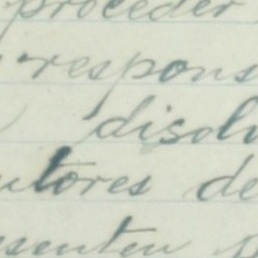 proceder
respons
disolv
utores de
esenten